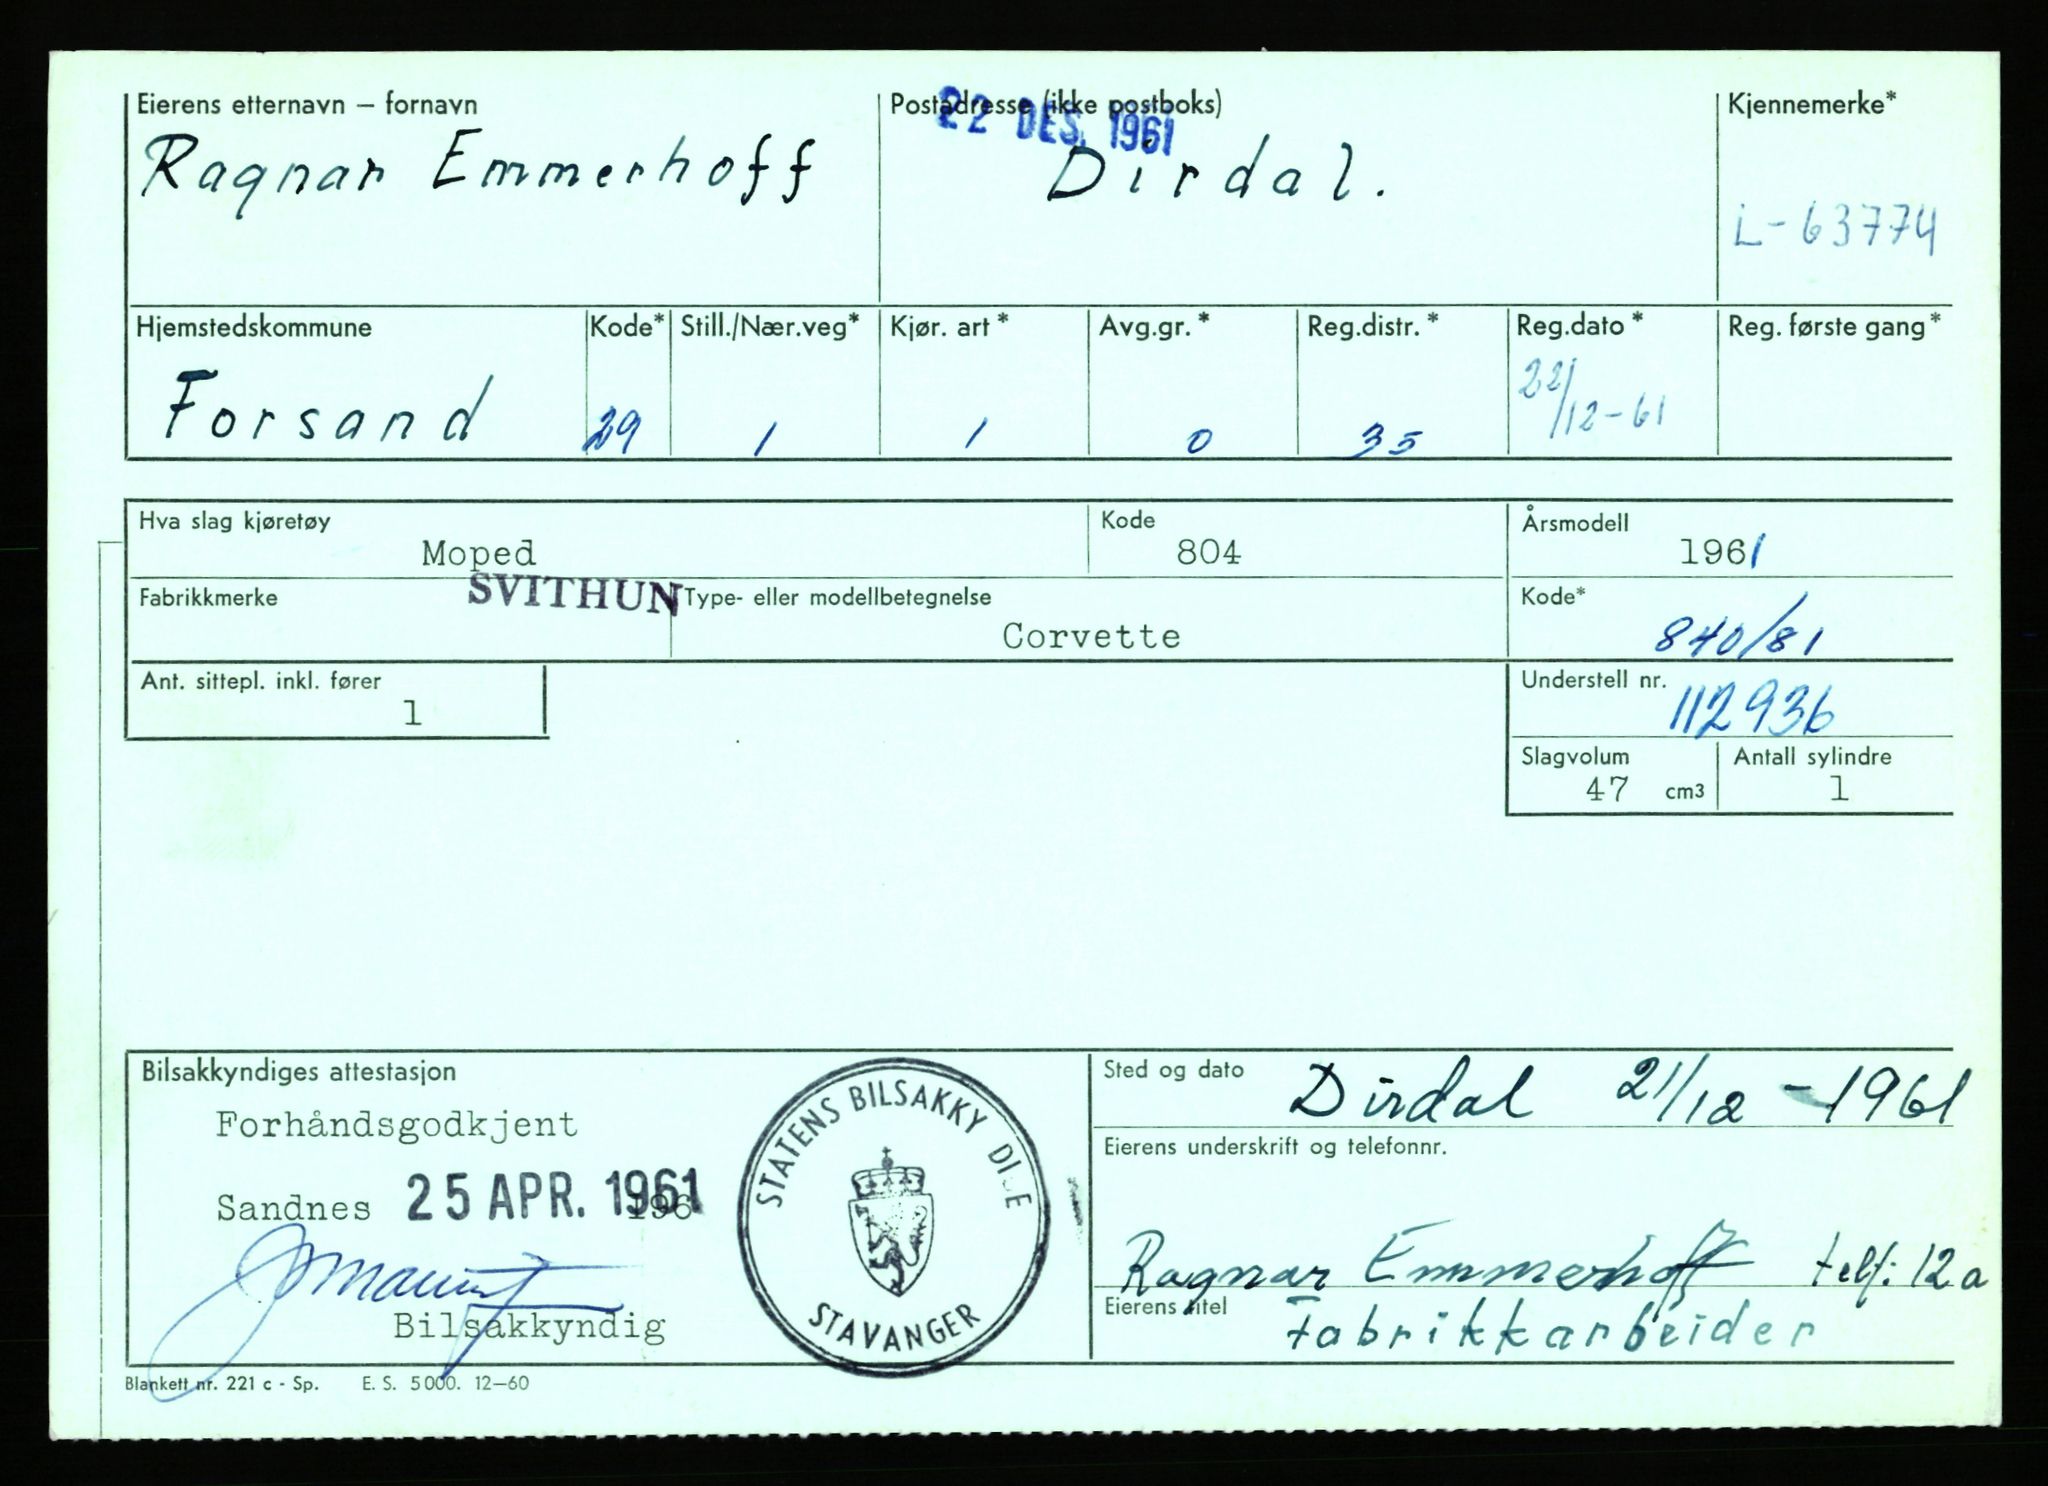 Eierens etternavn – fornavn
Ragnar Emmerhoff
Postadresse (ikke postboks)
22 DES. 1961
Dirdal.
Kjennemerke*
L-63774
Hjemstedskommune
Forsand
Kode*
29
Still./Nær.veg*
1
Kjør. art*
1
Avg.gr.*
0
Reg.distr.*
35
Reg.dato*
22/12-61
Reg. første gang*
Hva slag kjøretøy
Moped
Kode
804
Årsmodell
1961
Fabrikkmerke
SVITHUN
Type- eller modellbetegnelse
Corvette
Kode*
840/81
Ant. sittepl. inkl. fører
1
Understell nr.
112936
Slagvolum
47 cm3
Antall sylindre
1
Bilsakkyndiges attestasjon
Forhåndsgodkjent
Sandnes 25 APR. 1961
196
Bilsakkyndig
STATENS BILSAKKY DI E
STAVANGER
Sted og dato
Dirdal 21/12 - 1961
Eierens underskrift og telefonnr.
Ragnar Emmerhoff telf: 12a
Eierens titel
Fabrikkarbeider
Blankett nr. 221 c - Sp. E. S. 5000. 12–60